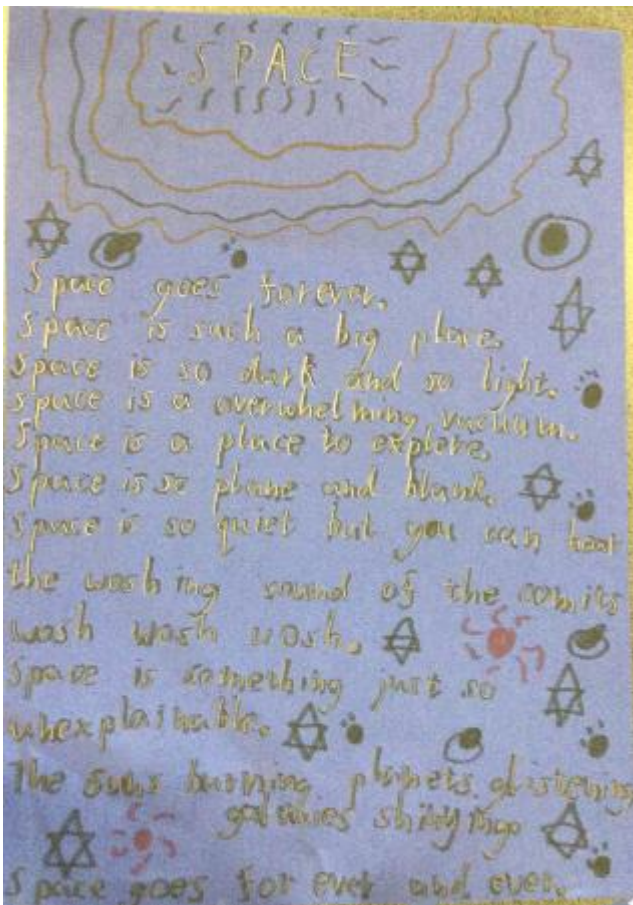 SPACE
Space goes forever.
Space is such a big place.
Space is so dark and so light.
Space is a overwhelming vacuum.
Space is a place to explore.
Space is so plane and blank.
Space is so quiet but you can hear
the woshing sound of the comits
wosh wosh wosh.
Space is something just so
unexplainable.
The suns burning planets glistening
galaxies shinying.
Space goes for ever and ever.